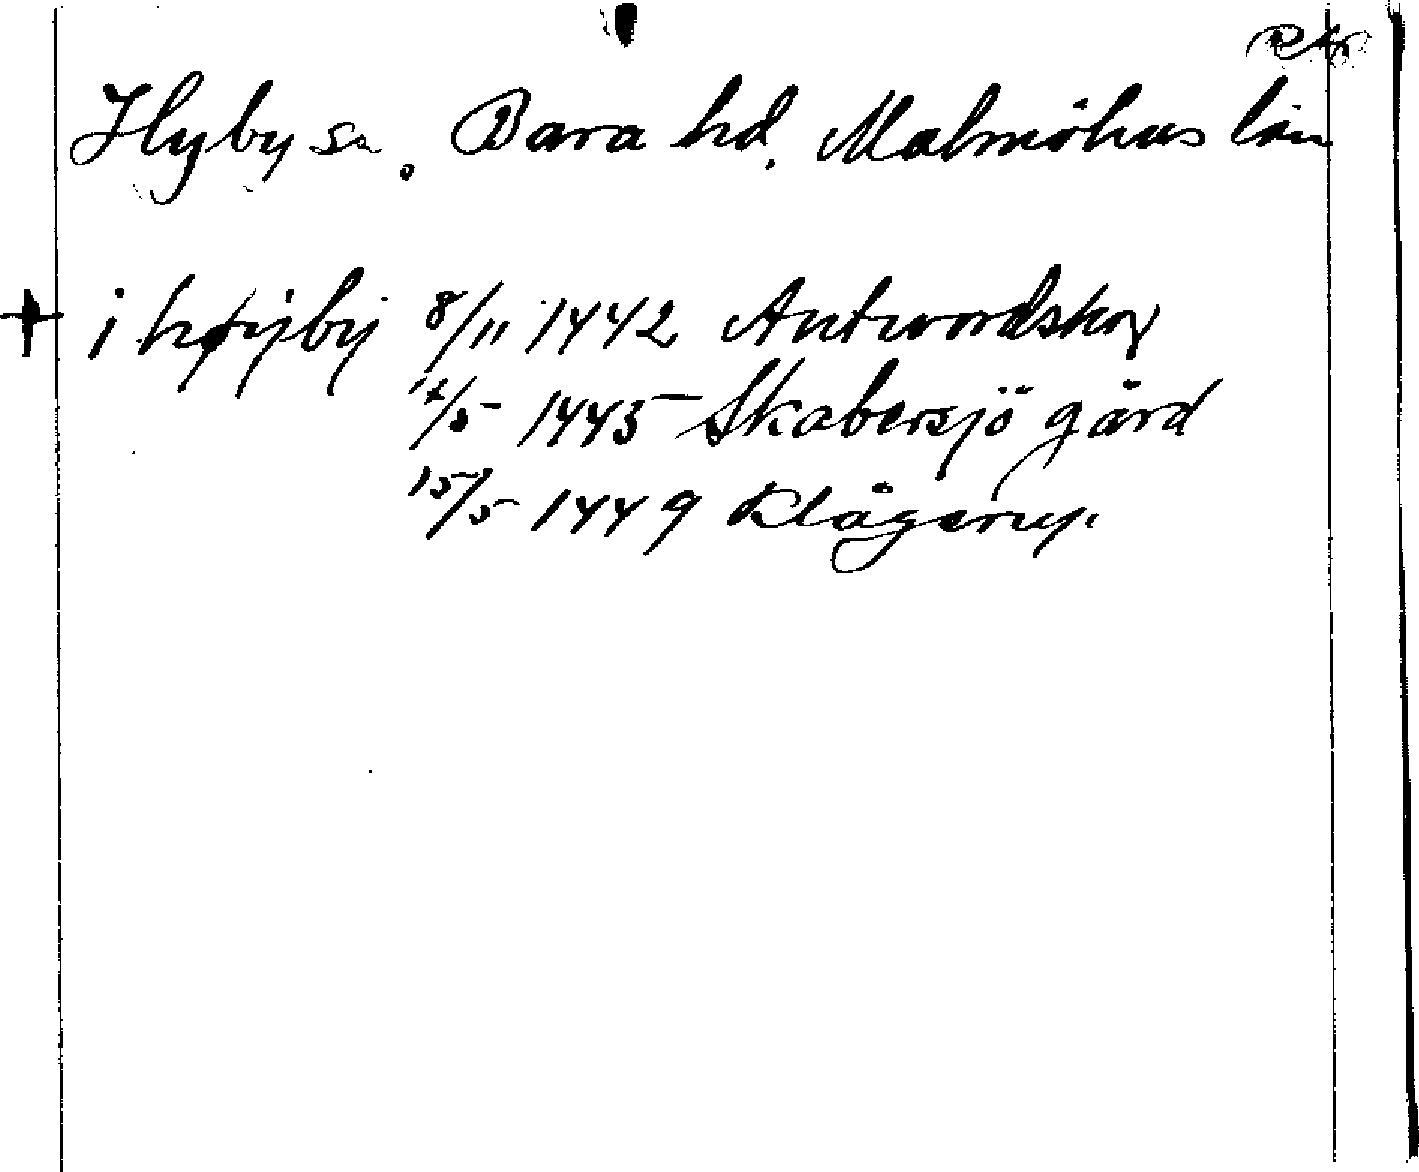 Hyby sn. Bara hd. Malmöhus län
+ i høyby 8/11 1442 Antvordskog
1445 Skabersjö gård
15/5 1449 Klågerup.